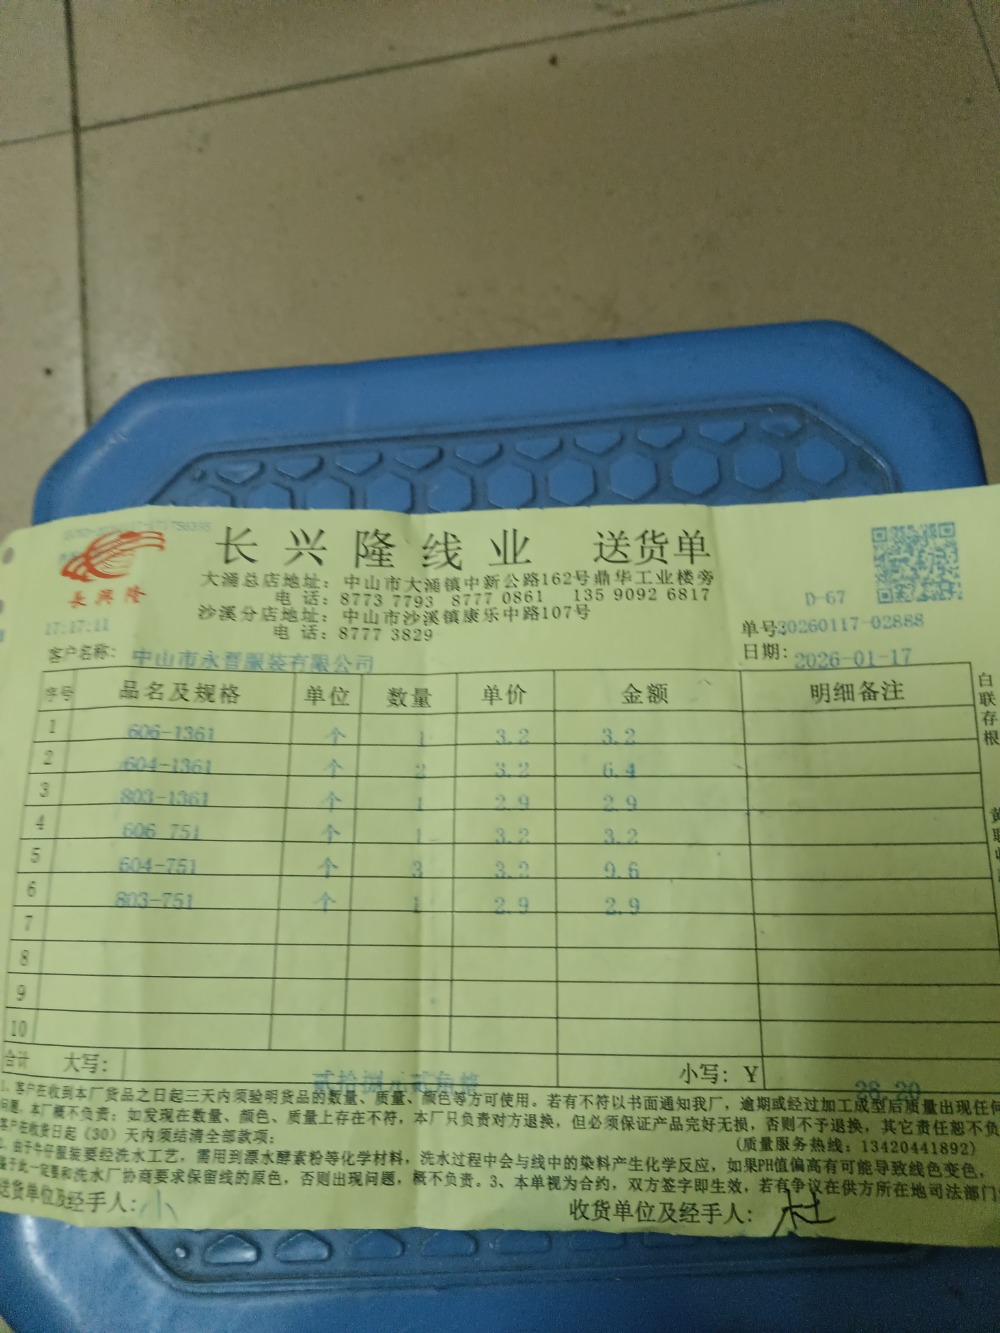 长兴隆线业 送货单
长興隆
大涌总店地址：中山市大涌镇中新公路162号鼎华工业楼旁
电 话：8773 7793 8777 0861 135 9092 6817
沙溪分店地址：中山市沙溪镇康乐中路107号
电 话：8777 3829
D-67
17:17:11
单号:20260117-02888
客户名称：中山市永晋服装有限公司
日期：2026-01-17
序号 品名及规格 单位 数量 单价 金额 明细备注
1 606-1361 个 1 3.2 3.2
2 604-1361 个 2 3.2 6.4
3 803-1361 个 1 2.9 2.9
4 606 751 个 1 3.2 3.2
5 604-751 个 3 3.2 9.6
6 803-751 个 1 2.9 2.9
7
8
9
10
合计 大写：贰拾捌元贰角整 小写：Y 28.20
1、客户在收到本厂货品之日起三天内须验明货品的数量、质量、颜色等方可使用。若有不符以书面通知我厂，逾期或经过加工成型后质量出现任何
问题，本厂概不负责；如发现在数量、颜色、质量上存在不符，本厂只负责对方退换，但必须保证产品完好无损，否则不予退换，其它责任恕不负
客户在收货日起（30）天内须结清全部款项；
（质量服务热线：13420441892）
2、由于牛仔服装要经洗水工艺，需用到漂水酵素粉等化学材料，洗水过程中会与线中的染料产生化学反应，如果PH值偏高有可能导致线色变色，
鉴于此一定要和洗水厂协商要求保留线的原色，否则出现问题，概不负责。3、本单视为合约，双方签字即生效，若有争议在供方所在地司法部门
送货单位及经手人：小
收货单位及经手人：杜
白联存根